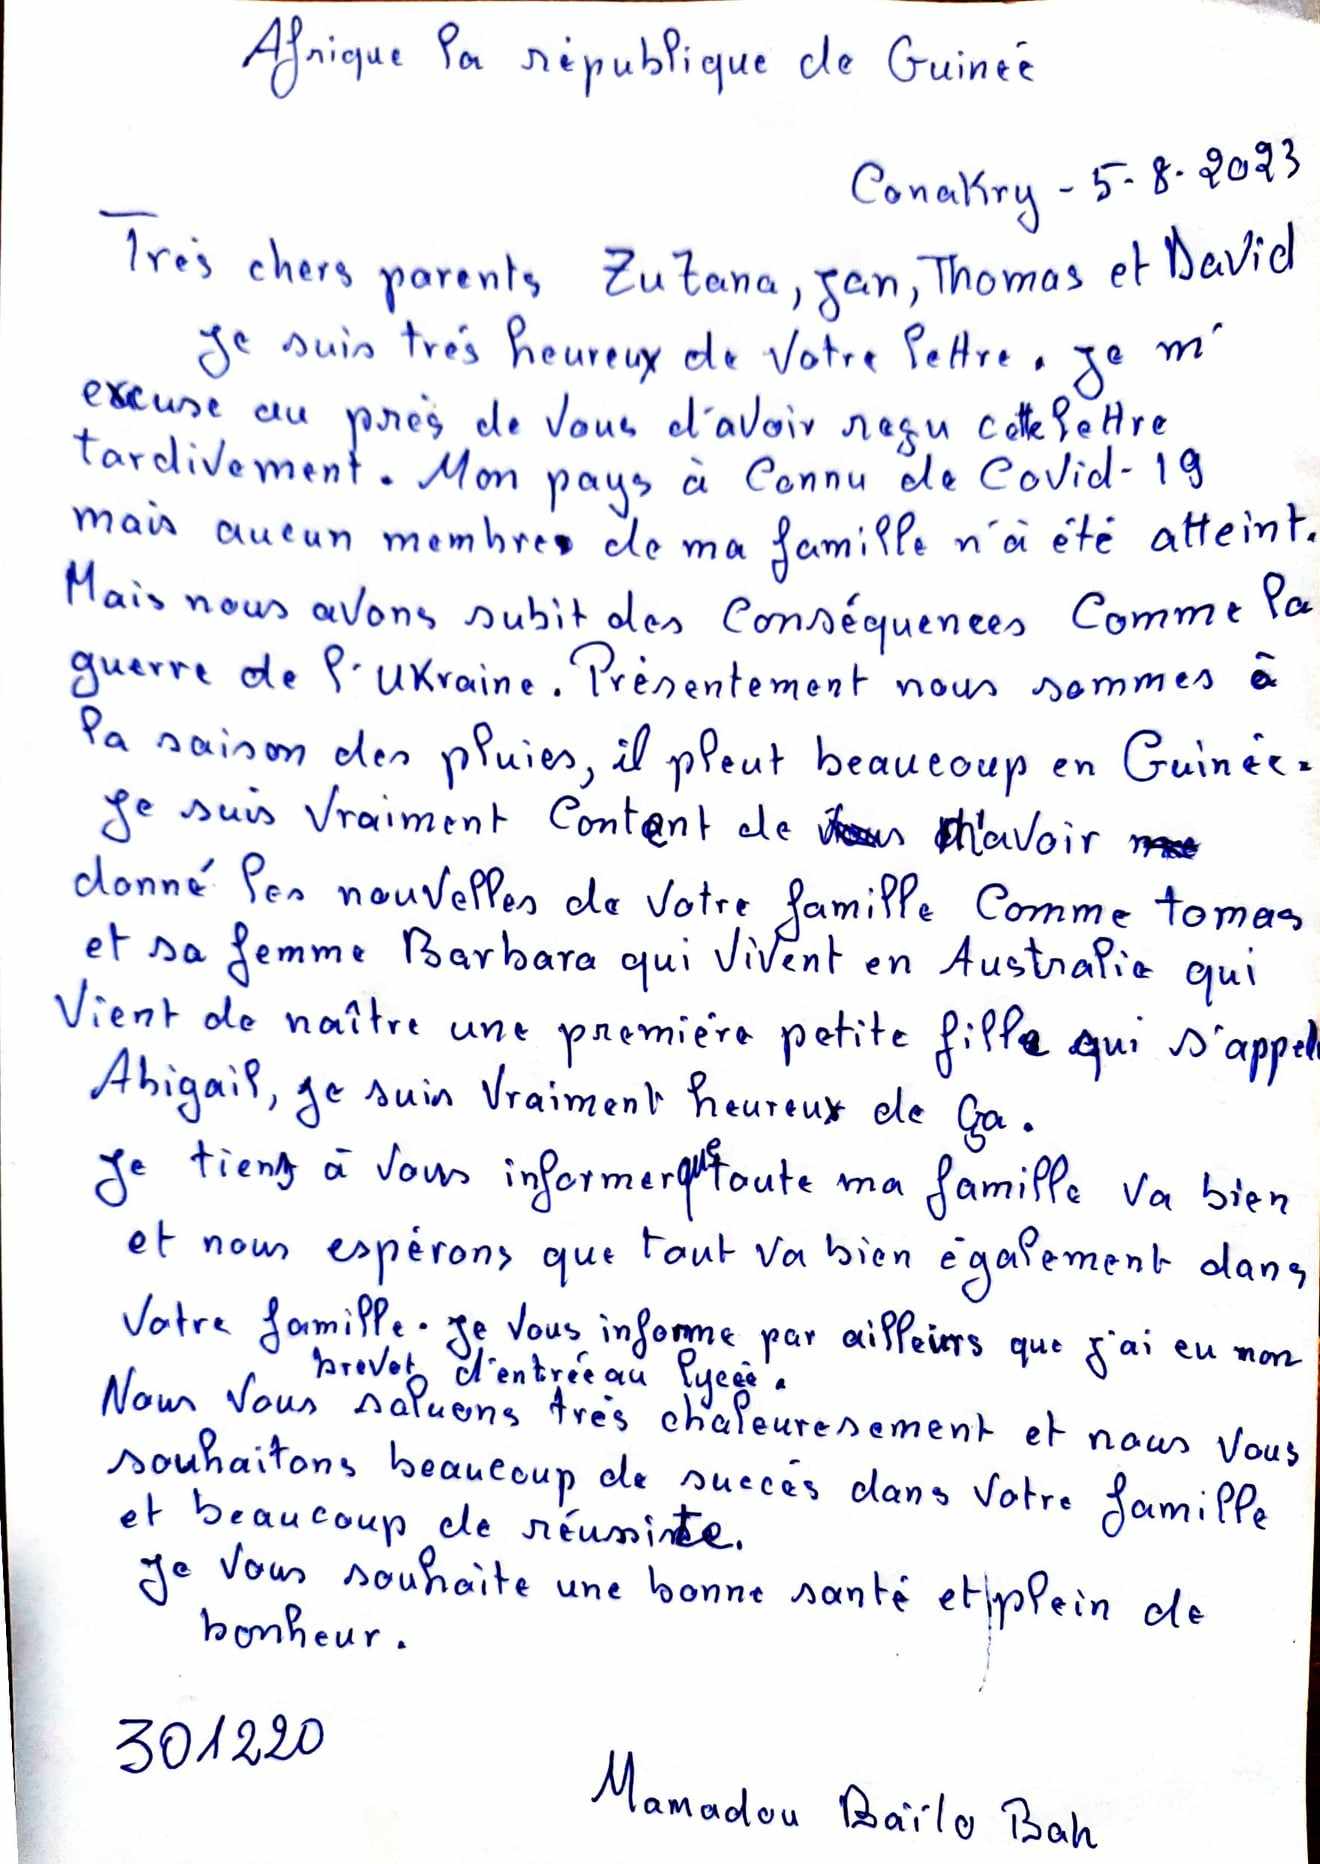 Afrique la république de Guineé
Conakry - 5-8-2023
Très chers parents Zuzana, Jan, Thomas et David
Je suis très heureux de votre lettre. Je m'
excuse au près de vous d'avoir reçu cette lettre
tardivement. Mon pays à connu de Covid-19
mais aucun membre de ma famille n'à été atteint.
Mais nous avons subit des conséquences comme la
guerre de l'Ukraine. Présentement nous sommes à
la saison des pluies, il pleut beaucoup en Guinée.
Je suis vraiment content de m'avoir
donné les nouvelles de votre famille comme tomas
et sa femme Barbara qui vivent en Australie qui
vient de naître une première petite fille qui s'appel
Abigail, je suis vraiment heureux de ça.
Je tiens à vous informer que toute ma famille va bien
et nous espérons que tout va bien également dans
votre famille. Je vous informe par ailleurs que j'ai eu mon
brevet d'entrée au lyceé.
Nous vous saluons très chaleuresement et nous vous
souhaitons beaucoup de succès dans votre famille
et beaucoup de réussite.
Je vous souhaite une bonne santé et plein de
bonheur.
301220
Mamadou Baïlo Bah